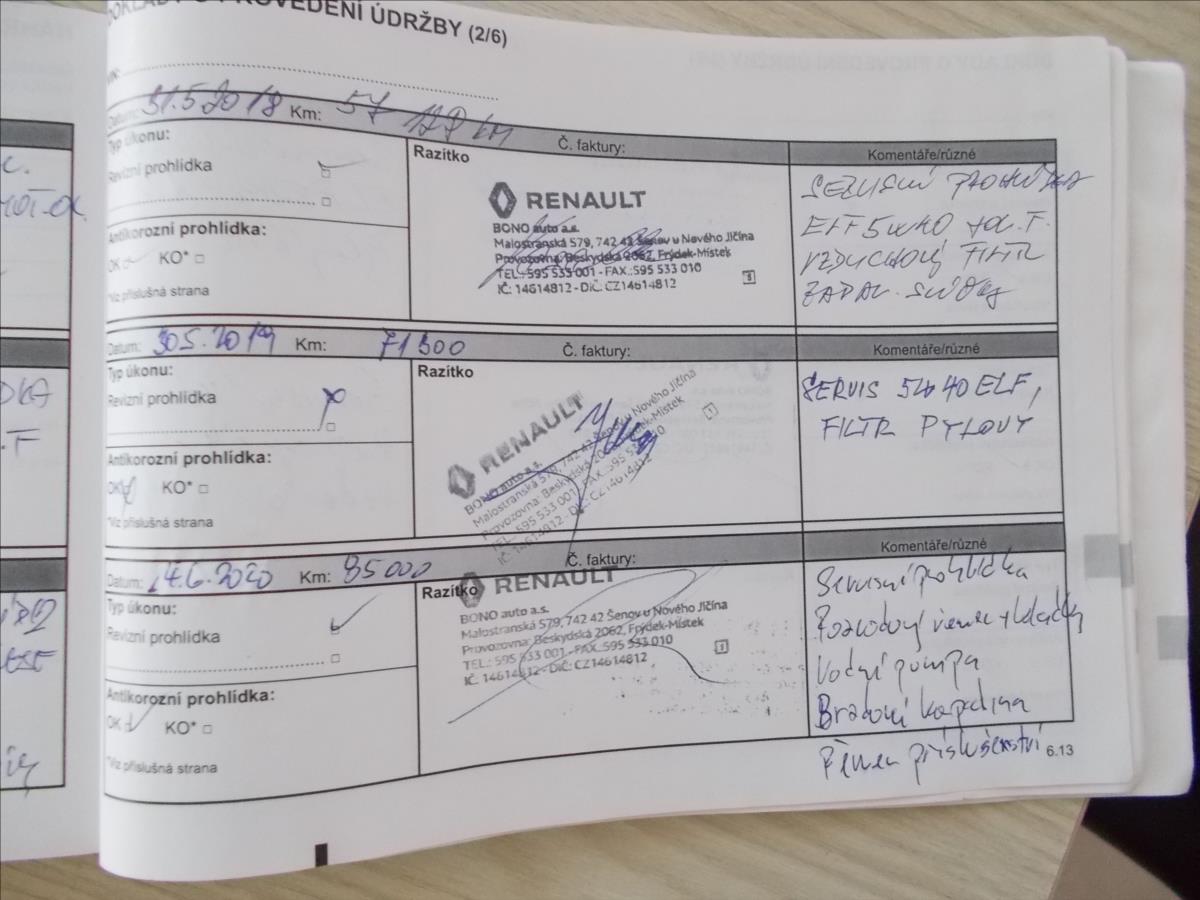 PROVEDENÍ ÚDRŽBY (2/6)
VIN:
Datum: 31.5.2018 Km: 57 km Č. faktury: Komentáře/různé
Typ úkonu:
Revizní prohlídka
Antikorozní prohlídka:
OK KO*
*Viz příslušná strana
Razítko
RENAULT
BONO auto a.s.
Malostranská 579, 742 42 Šenov u Nového Jičína
Provozovna: Beskydská 2062, Frýdek-Místek
TEL.: 595 533 001 - FAX.: 595 533 010
IČ: 14614812 - DIČ: CZ14614812
SERVISNÍ PROHLÍDKA
ELF 5W40 + OL. F.
VZDUCHOVÝ FILTR
ZAPAL. SVÍČKY
Datum: 30.5.2019 Km: 71 300 Č. faktury: Komentáře/různé
Typ úkonu:
Revizní prohlídka
Antikorozní prohlídka:
OK KO*
*Viz příslušná strana
Razítko
RENAULT
BONO auto a.s.
Malostranská 579, 742 42 Šenov u Nového Jičína
Provozovna: Beskydská 2062, Frýdek-Místek
TEL.: 595 533 001 - FAX.: 595 533 010
IČ: 14614812 - DIČ: CZ14614812
SERVIS 5W40 ELF,
FILTR PYLOVÝ
Datum: 14.6.2020 Km: 85000 Č. faktury: Komentáře/různé
Typ úkonu:
Revizní prohlídka
Antikorozní prohlídka:
OK KO*
*Viz příslušná strana
Razítko
RENAULT
BONO auto a.s.
Malostranská 579, 742 42 Šenov u Nového Jičína
Provozovna: Beskydská 2062, Frýdek-Místek
TEL.: 595 533 001 - FAX.: 595 533 010
IČ: 14614812 - DIČ: CZ14614812
Servisní prohlídka
Rozvodový řemen + kladky
Vodní pumpa
Brzdová kapalina
Řemen příslušenství
6.13